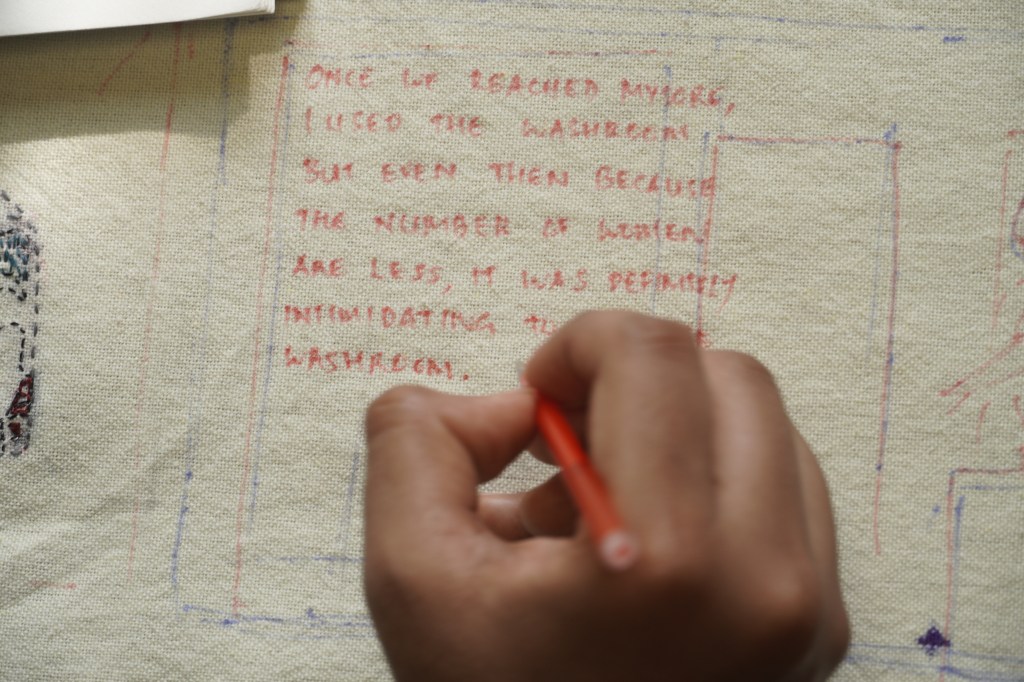 ONCE WE REACHED MYSORE,
I USED THE WASHROOM
BUT EVEN THEN BECAUSE
THE NUMBER OF WOMEN
ARE LESS, IT WAS DEFINITELY
INTIMIDATING TO
WASHROOM.